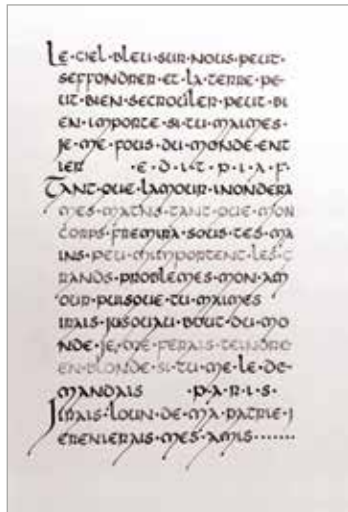 LE·CIEL·BLEU·SUR·NOUS·PEUT·
SEFFONDRER·ET·LA·TERRE·PE-
UT·BIEN·SECROULER·PEUT·BI
EN·IMPORTE·SI·TU·MAIMES·
JE·ME·FOUS·DU·MONDE·ENT
IER ·E·D·I·T·P·I·A·F·
TANT·QUE·LAMOUR·INONDERA
MES·MATINS·TANT·QUE·MON
CORPS·FREMIRA·SOUS·TES·MA
INS·PEU·MIMPORTENT·LES·G
RANDS·PROBLEMES·MON·AM
OUR·PUISQUE·TU·MAIMES
IRAIS·JUSQUAU·BOUT·DU·MO
NDE·JE·ME·FERAIS·TEINDRE
EN·BLONDE·SI·TU·ME·LE·DE-
MANDAIS ·P·A·R·I·S·
JIRAIS·LOUN·DE·MA·PATRIE·J
ERENIERAIS·MES·AMIS·······